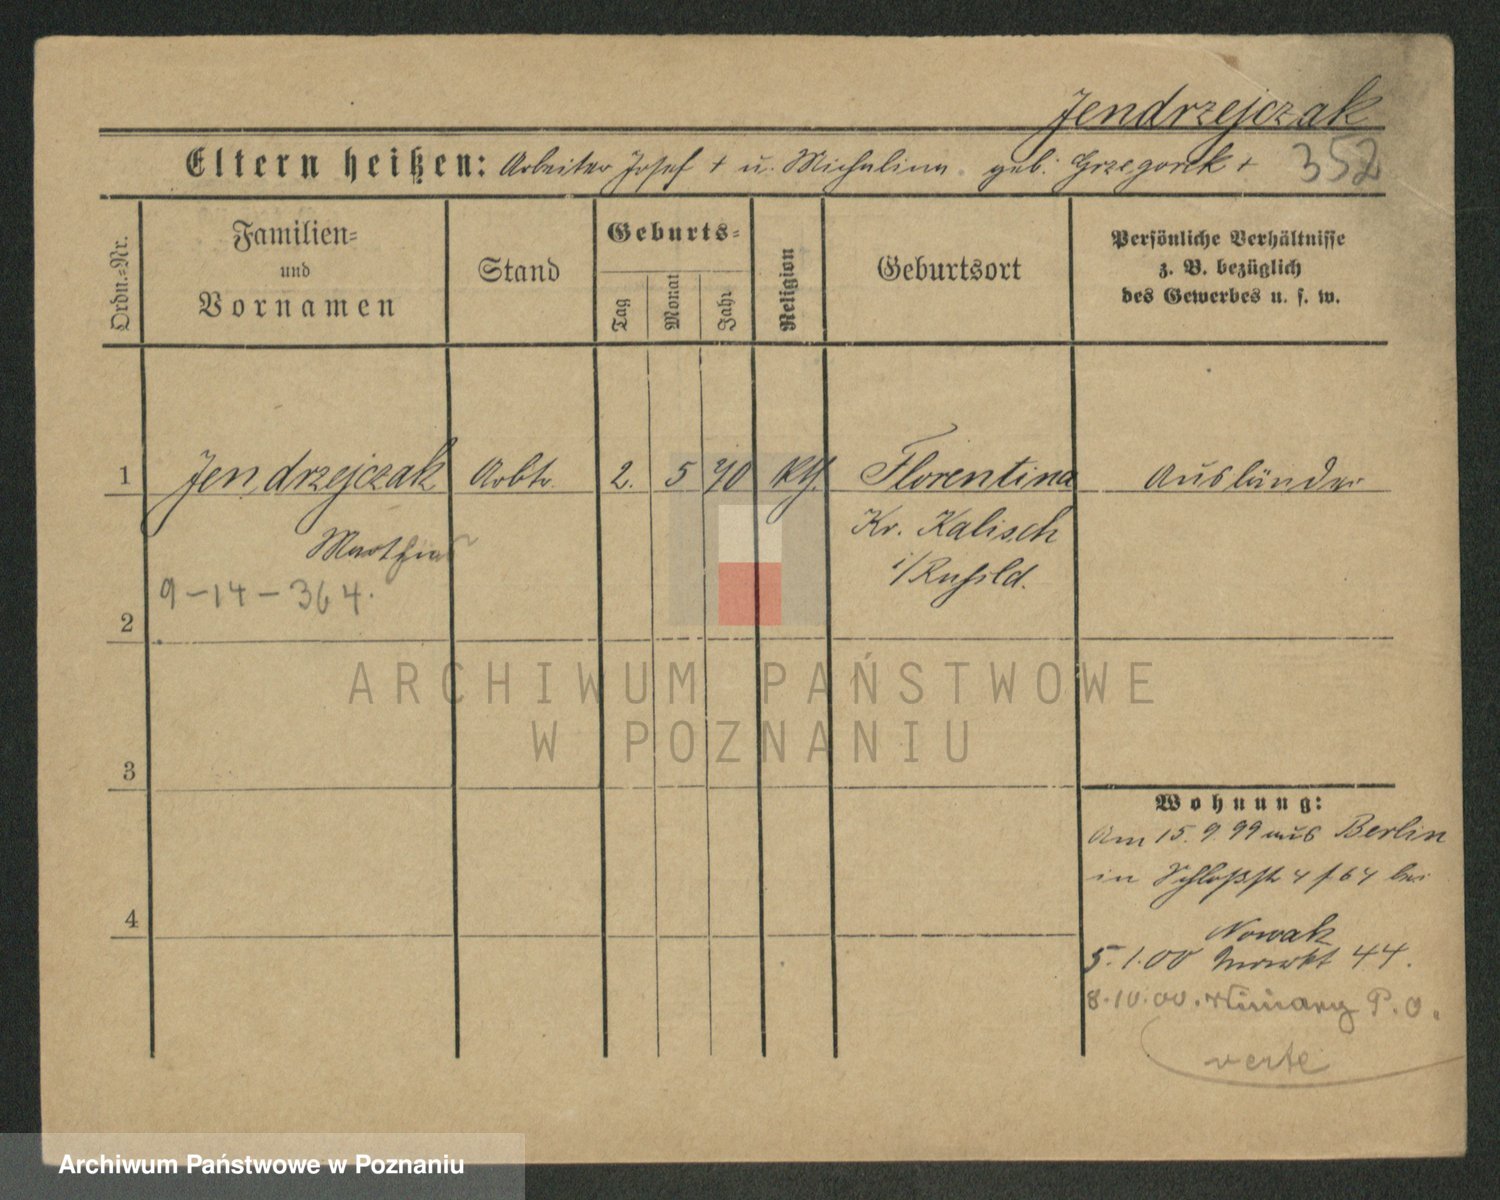 Jendrzejczak
Eltern heißen: Arbeiter Josef + u. Michalina geb. Grzegorek +
352
Ordn.=Nr.
Familien=
und
Vornamen
Stand
Geburts=
Tag
Monat
Jahr
Religion
Geburtsort
Persönliche Verhältnisse
z. B. bezüglich
des Gewerbes u. s. w.
1 Jendrzejczak Arbtr. 2. 5 70 kth. Florentina Ausländer
Kr. Kalisch
Mathias
i/Russld.
9-14-364.
2
3
4
ARCHIWUM PAŃSTWOWE
W POZNANIU
Wohnung:
Am 15. 9. 99 aus Berlin
in Schloßstr 4 bei
Nowak
5.1.00 Markt 44.
8.10.00. Winiary P.O.
verte
Archiwum Państwowe w Poznaniu